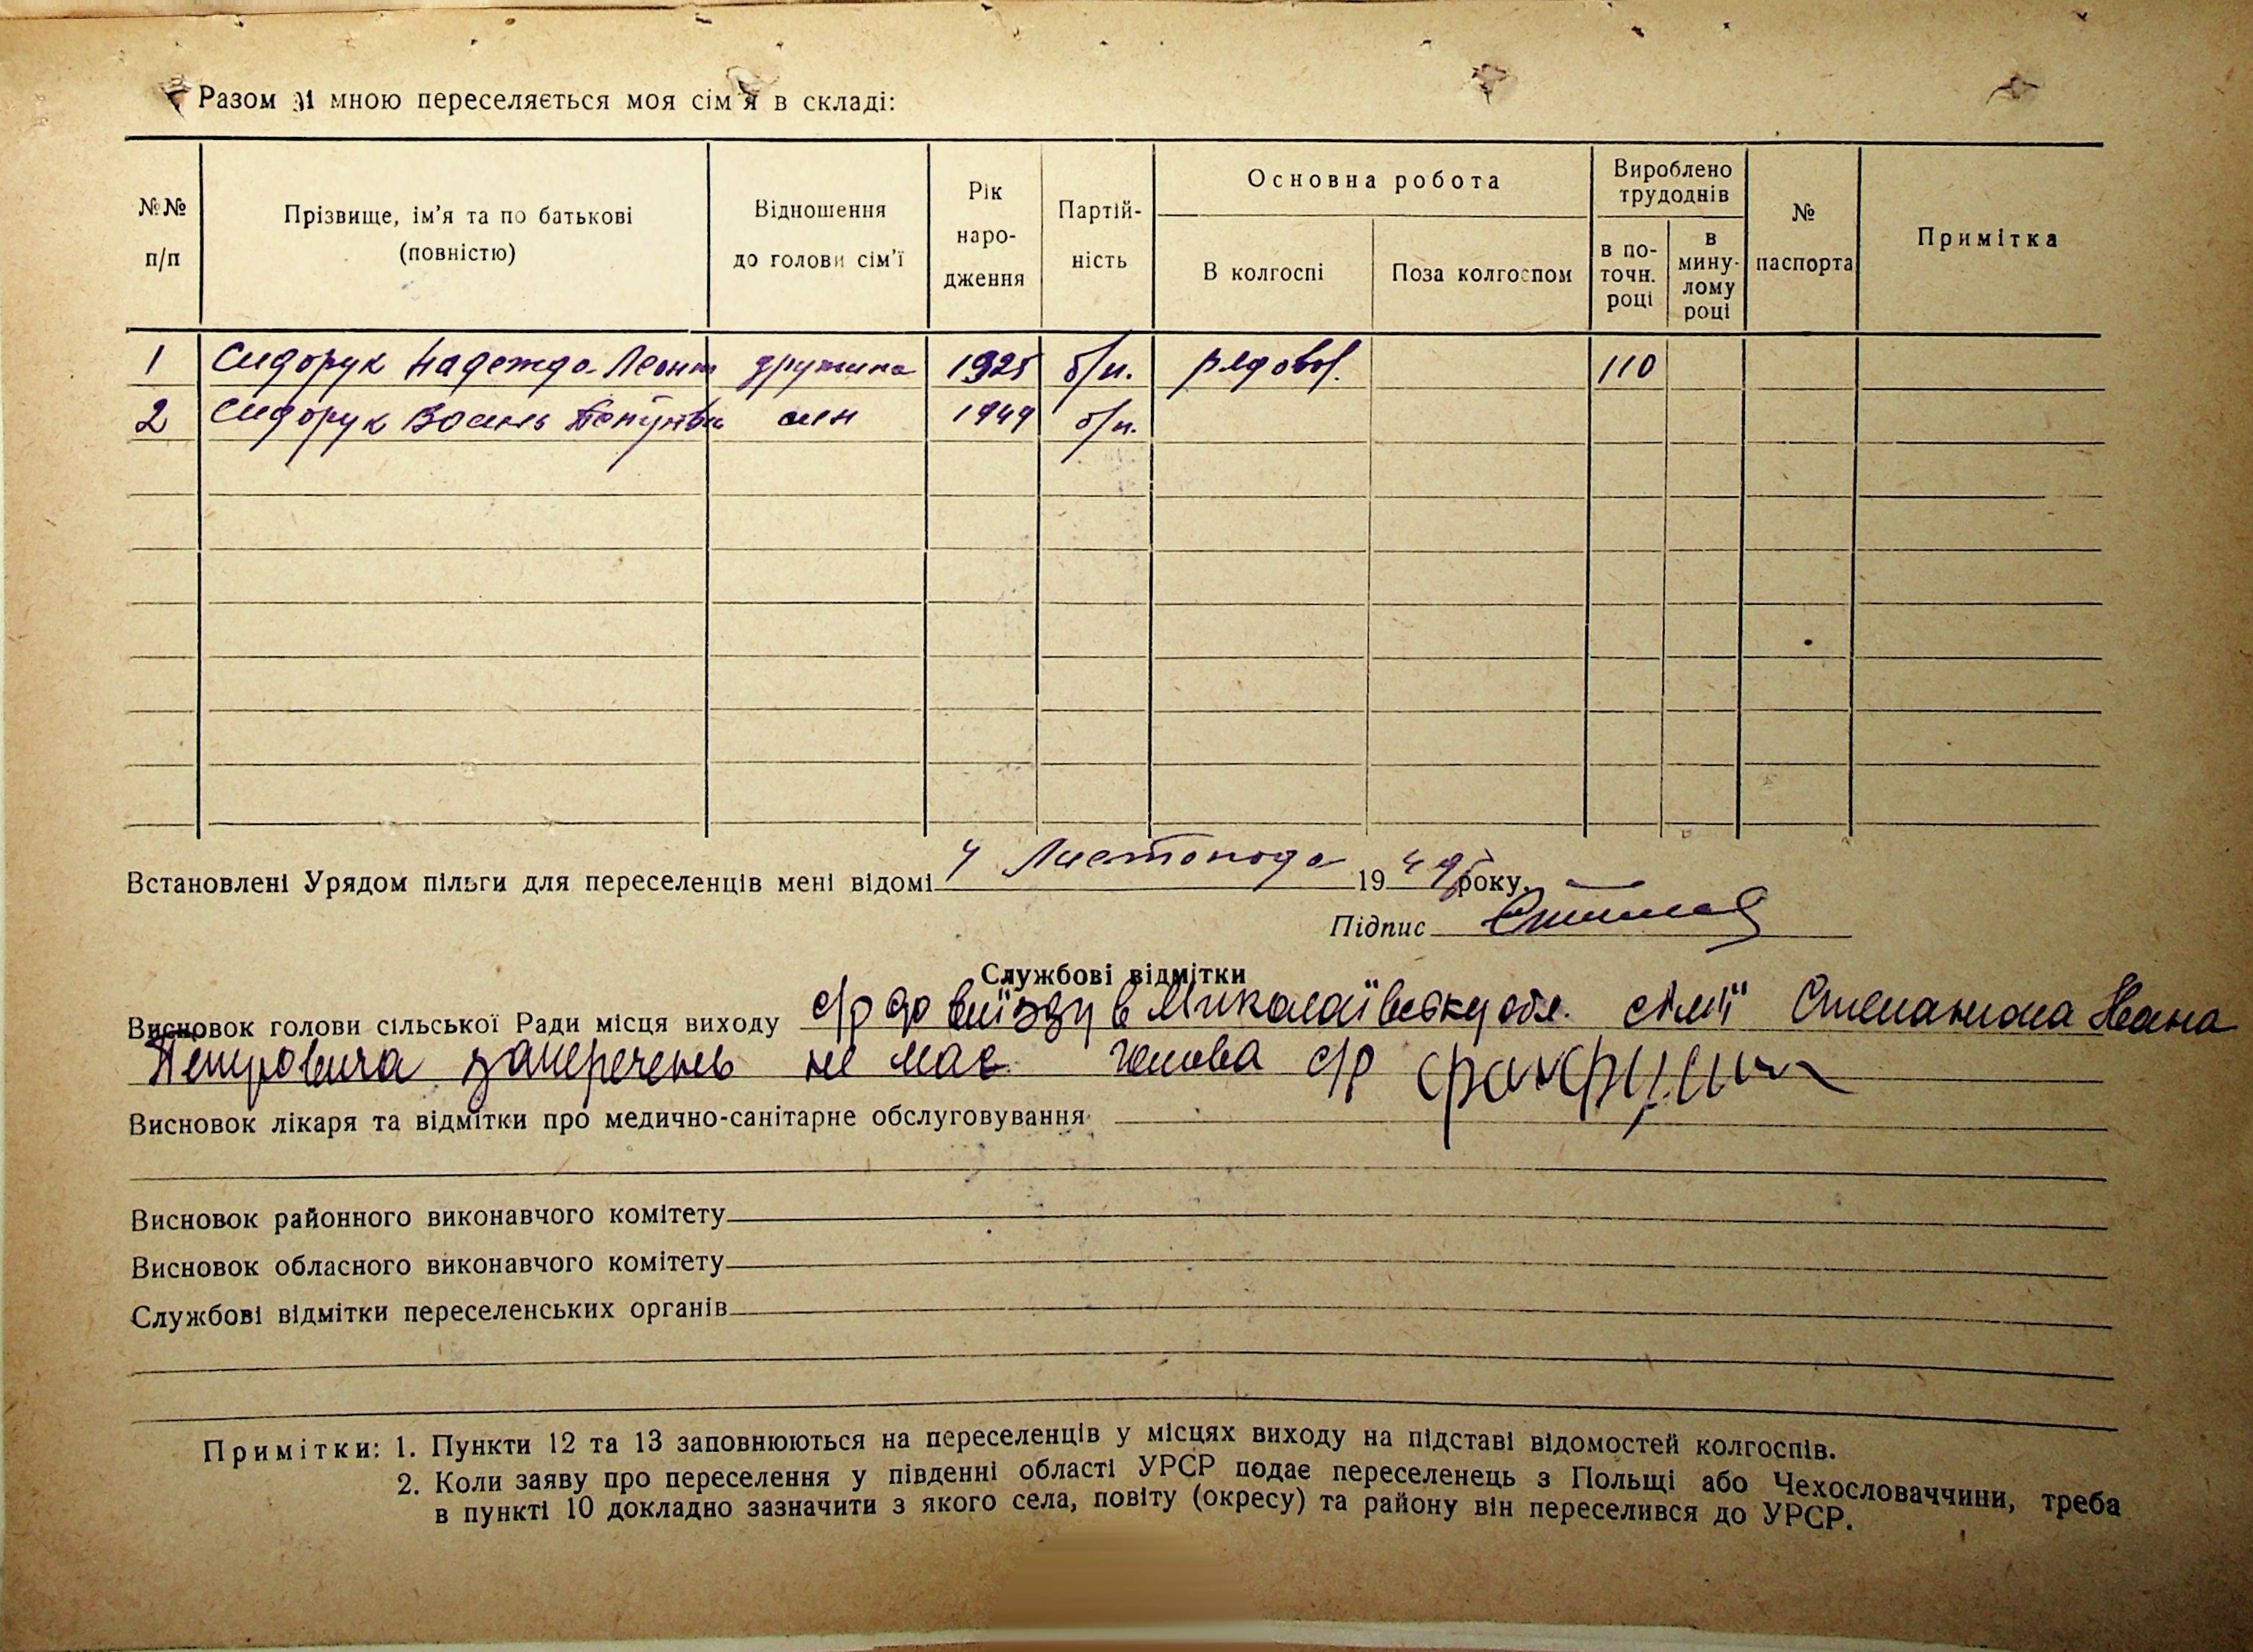 Разом зі мною переселяється моя сім'я в складі:
№№ п/п
Прізвище, ім'я та по батькові (повністю)
Відношення до голови сім'ї
Рік наро-дження
Партій-ність
Основна робота
В колгоспі
Поза колгоспом
Вироблено трудоднів
в по-точн. році
в мину-лому році
№ паспорта
Примітка
1 Сидорук Надежда Леонт дружина 1925 б/п. рядовой. 110
2 Сидорук син 1949 б/п.
Встановлені Урядом пільги для переселенців мені відомі 4 Листопада 1949 року.
Підпис
Службові відмітки
Висновок голови сільської Ради місця виходу с/р до виїзду в Миколаївську обл. сімї Степанюка Івана
Петровича заперечень не має. Голова с/р
Висновок лікаря та відмітки про медично-санітарне обслуговування
Висновок районного виконавчого комітету
Висновок обласного виконавчого комітету
Службові відмітки переселенських органів
Примітки: 1. Пункти 12 та 13 заповнюються на переселенців у місцях виходу на підставі відомостей колгоспів.
2. Коли заяву про переселення у південні області УРСР подає переселенець з Польщі або Чехословаччини, треба
в пункті 10 докладно зазначити з якого села, повіту (окресу) та району він переселився до УРСР.